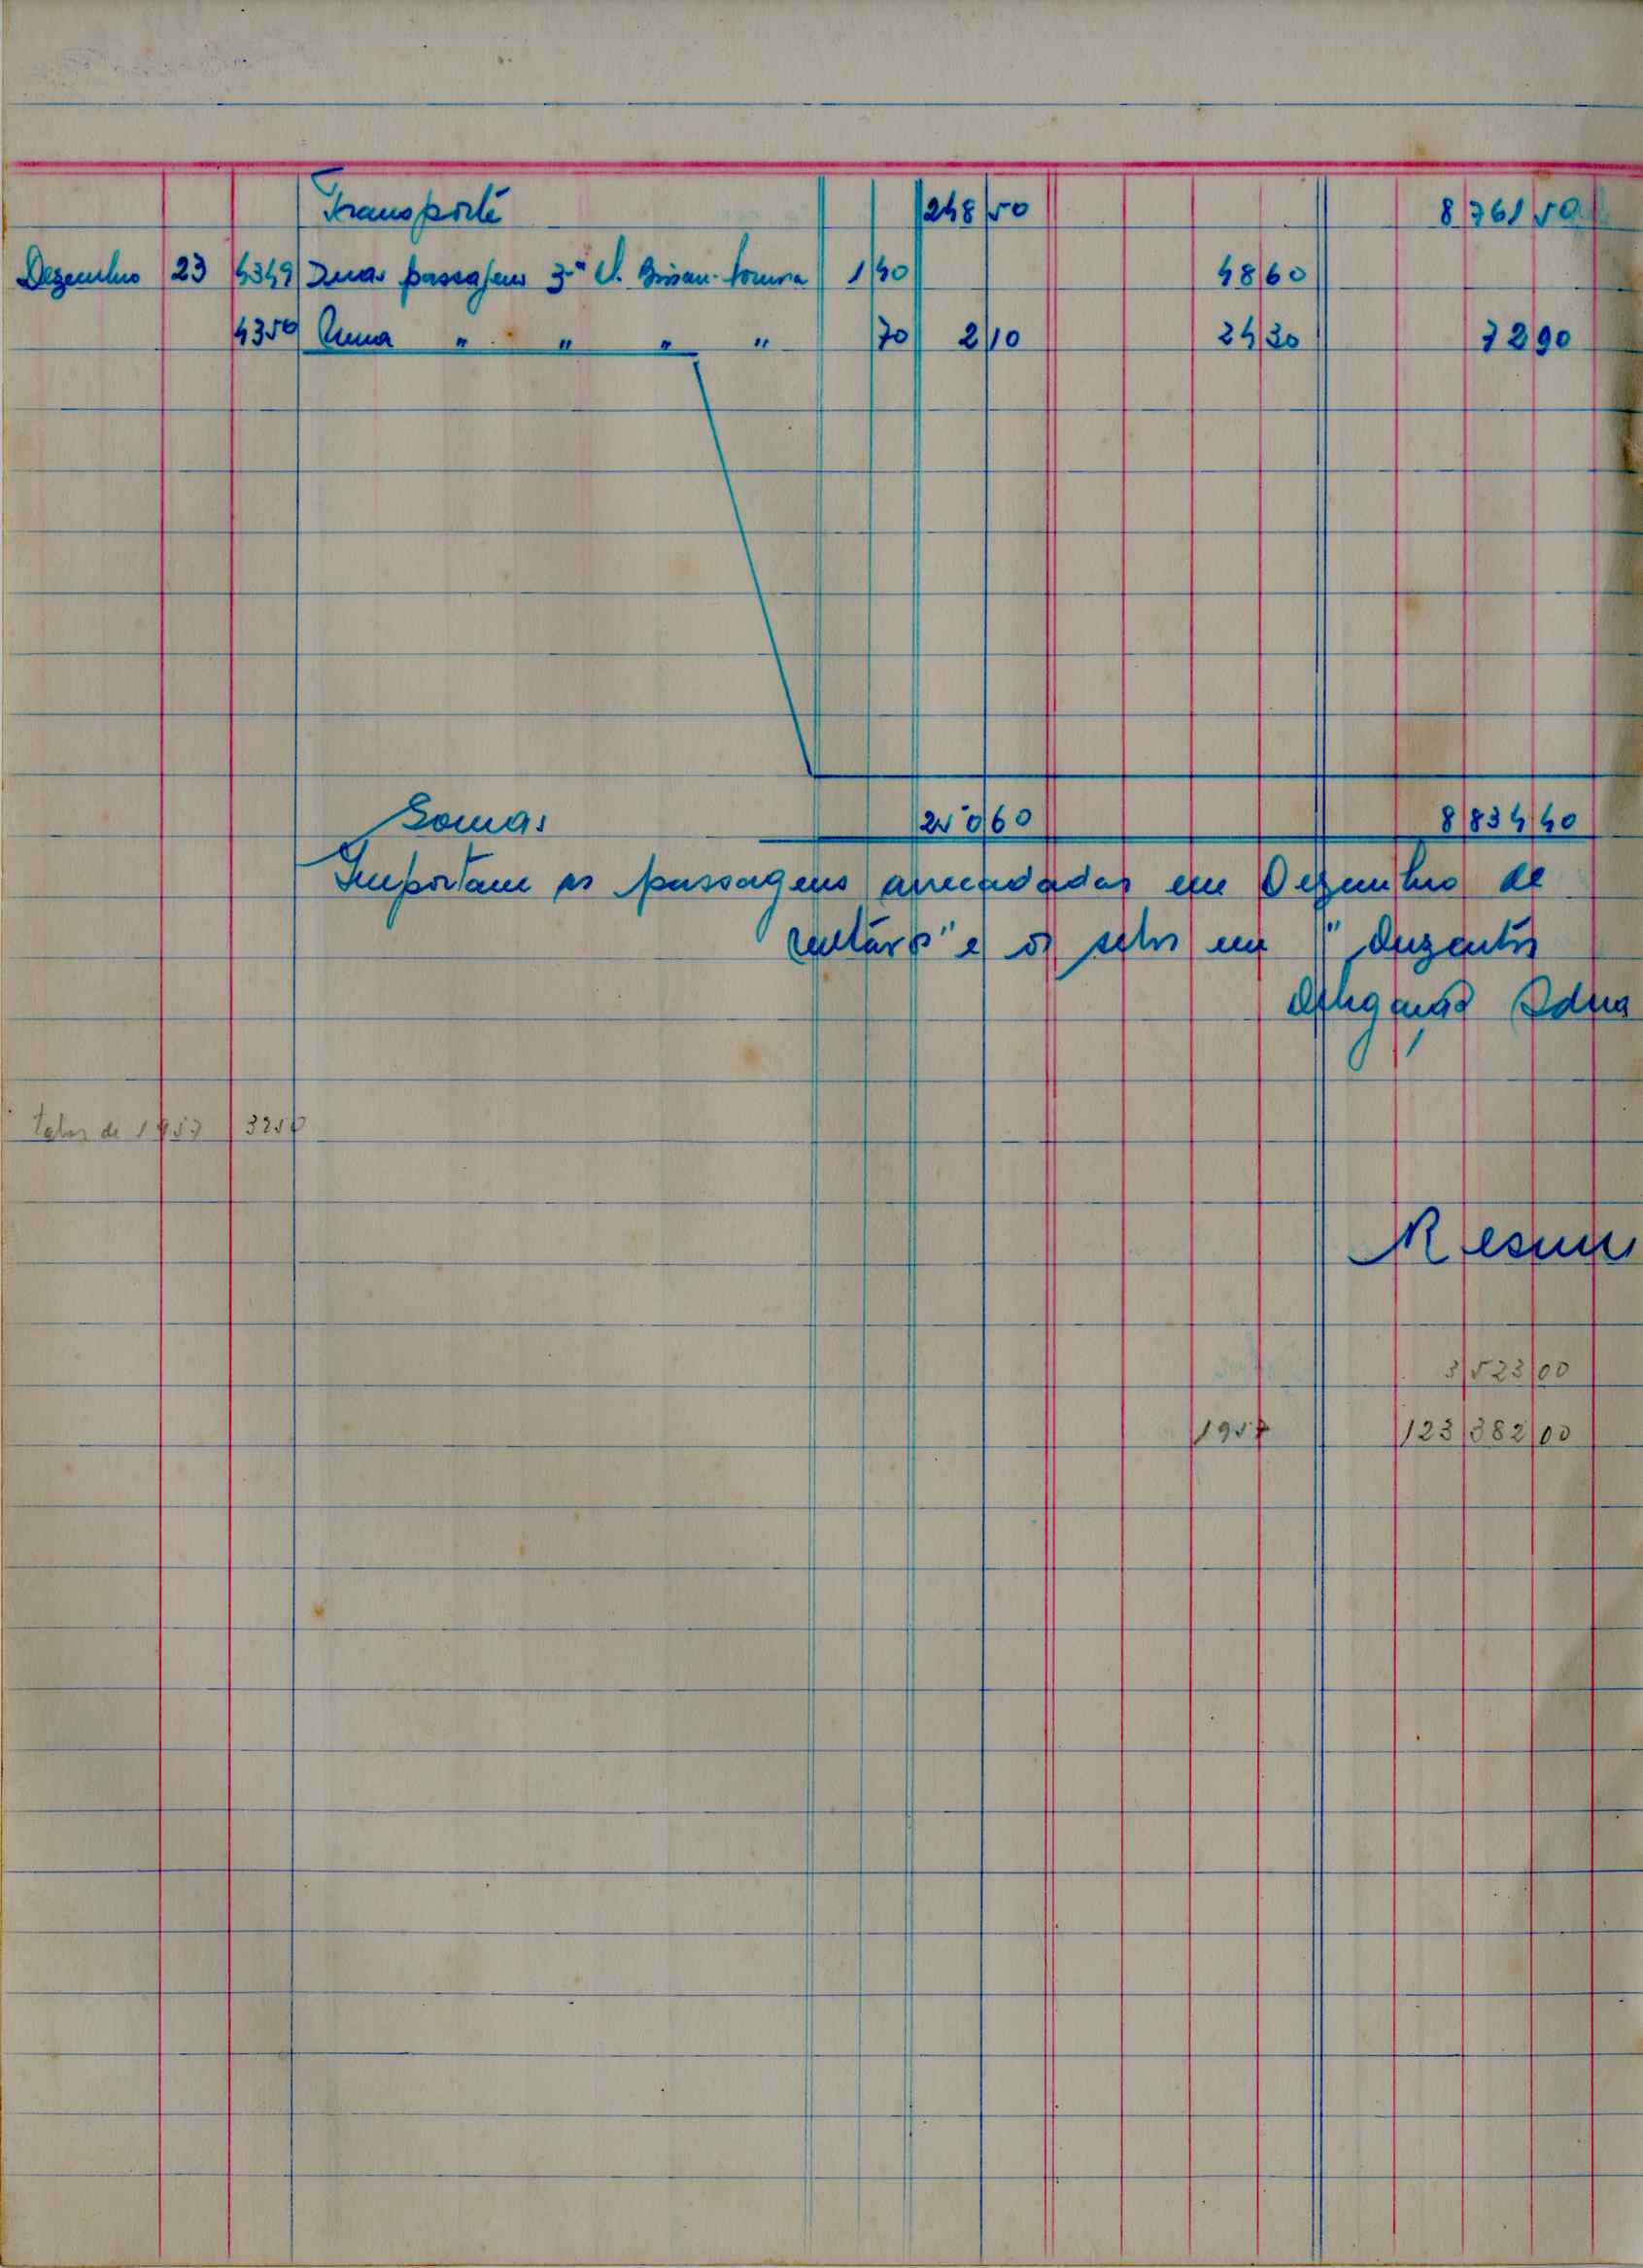 Transporte 248 50 8 761 50
Dezembro 23 4349 Duas passagens 3ª cl. Bissau- 1 40 48 60
4350 Uma " " " " 70 2 10 24 30 72 90
Somas 250 60 8 834 40
Importam as passagens arrecadadas em Dezembro de
centavos" e os selos em " duzentos
Delegação Adua
de 1957 3250
Resum
3 523 00
1957 123 382 00